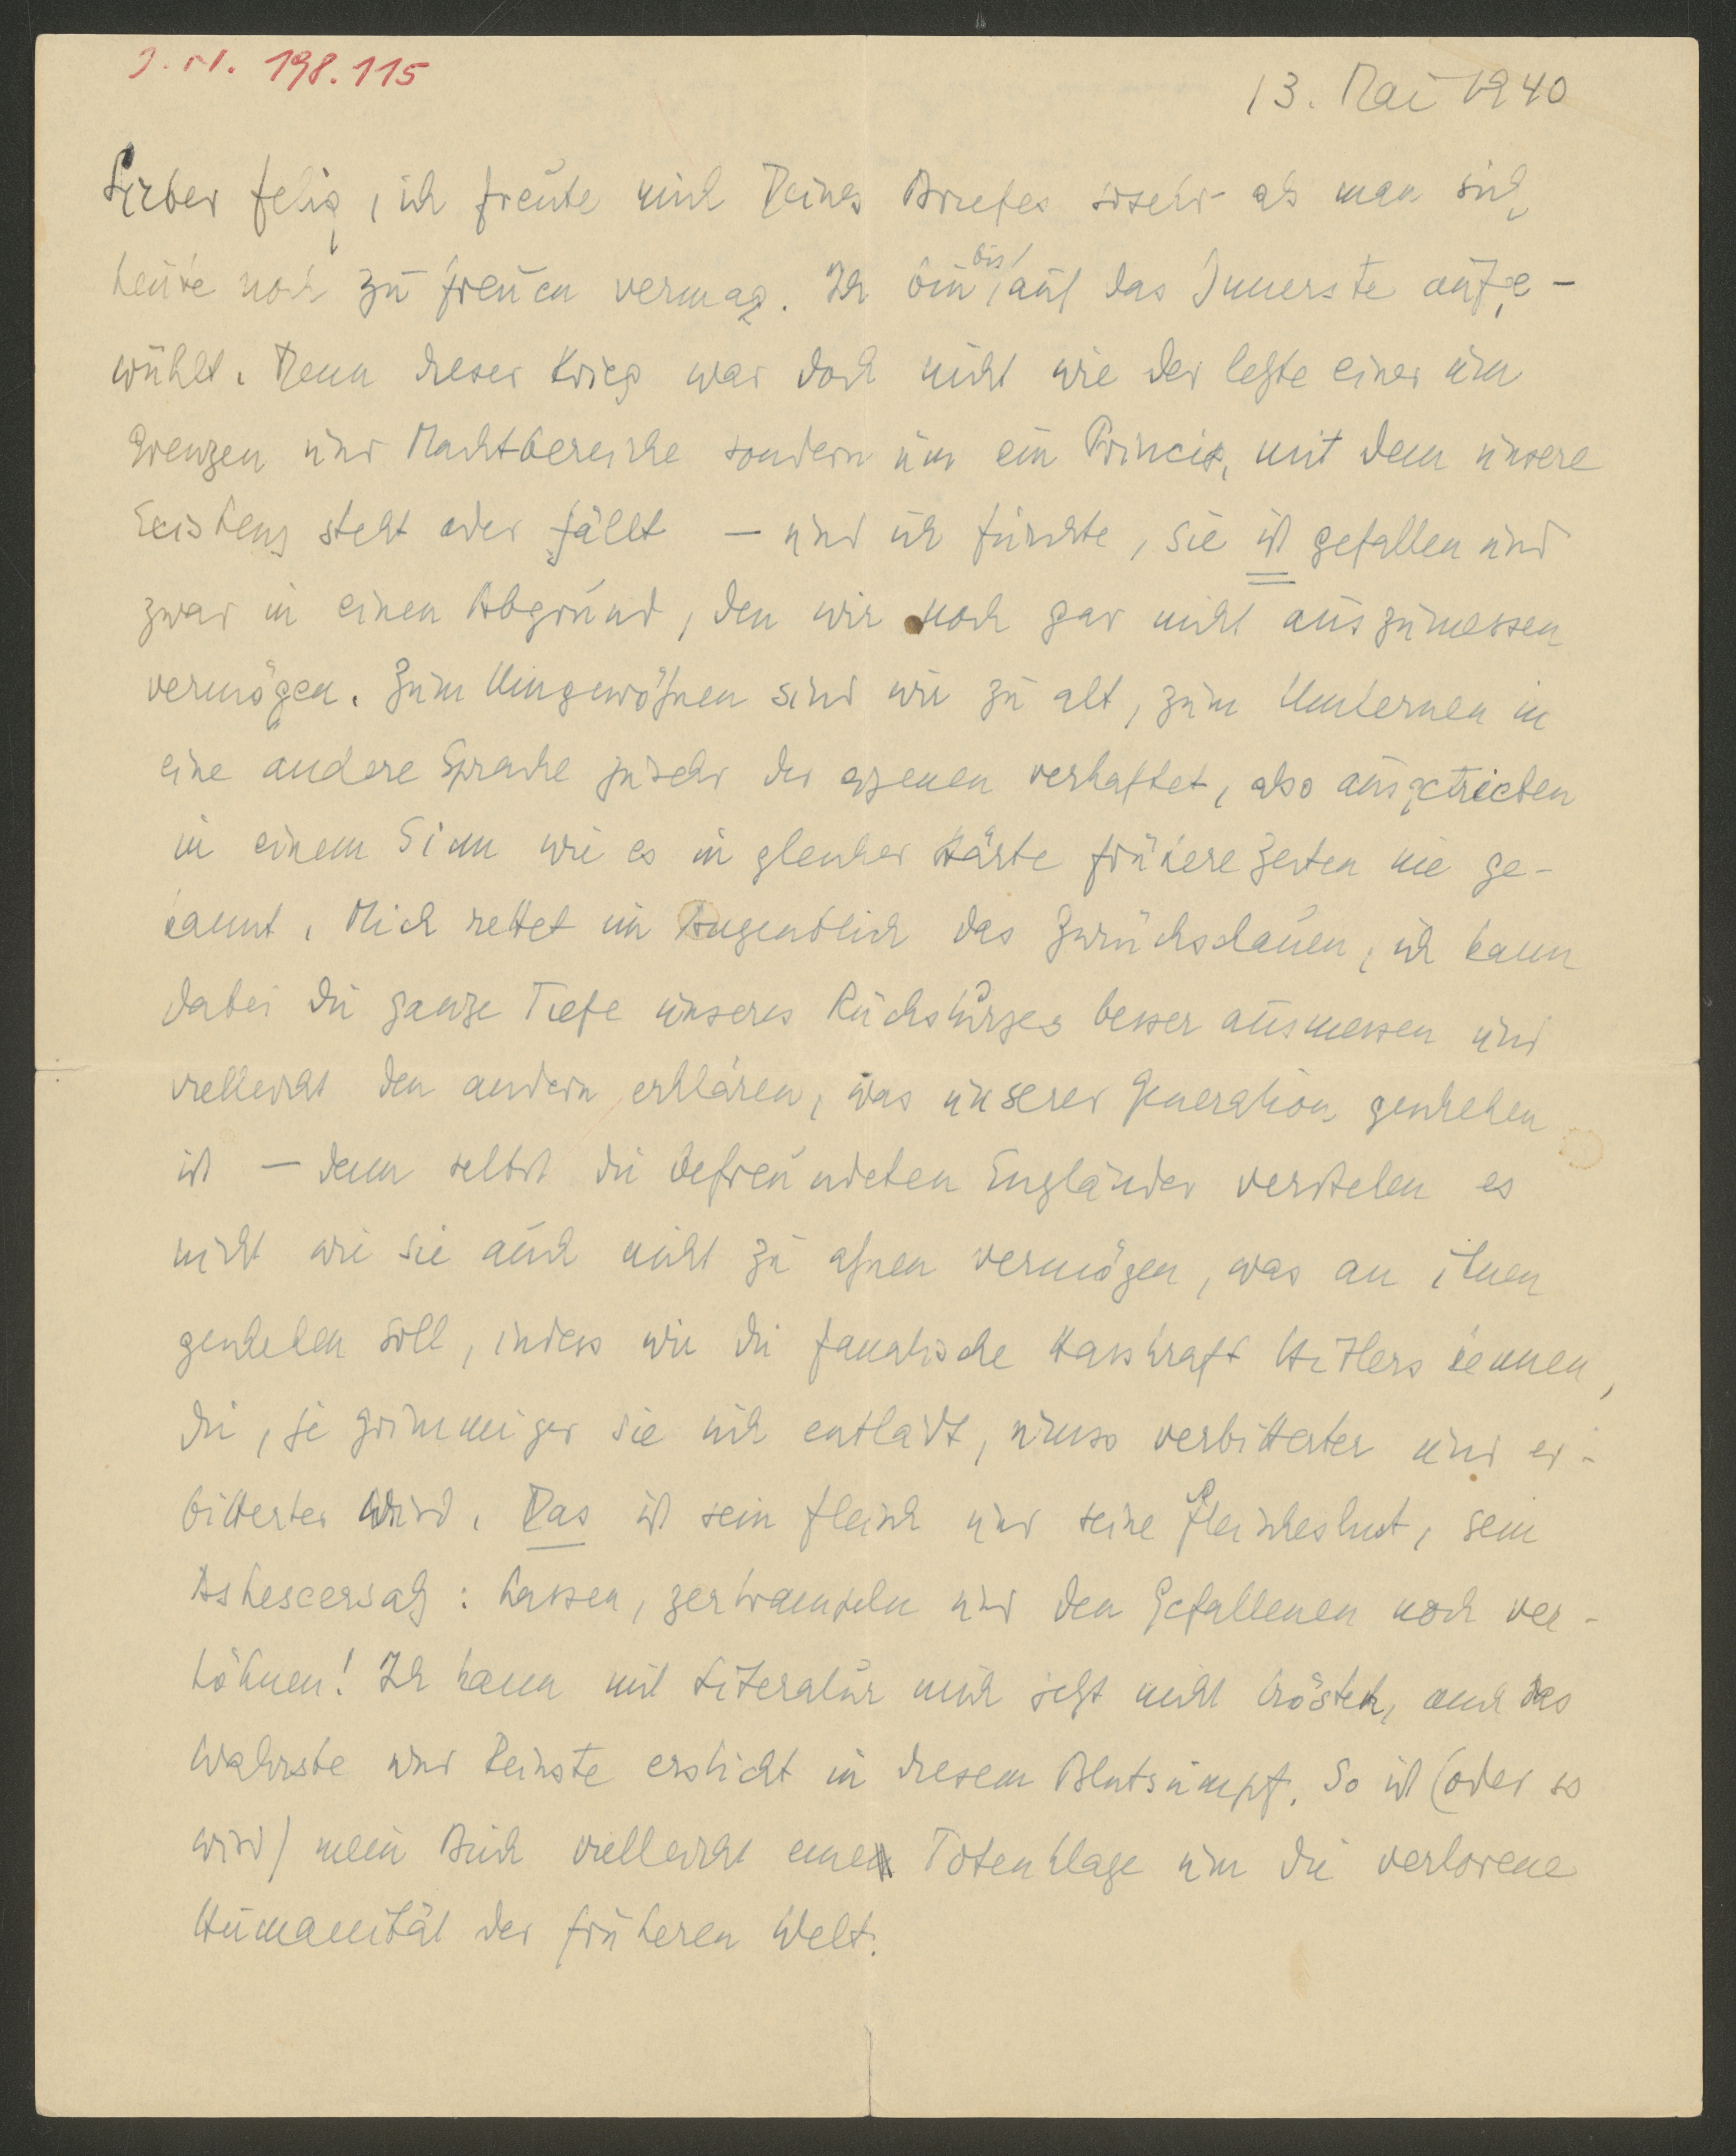 J. N. 198.115
13. Mai 1940
Lieber Felix, ich freute mich Deines Briefes sosehr als man sich
heute noch zu freuen vermag. Ich bin bis auf das Innerste aufge-
wühlt. Denn dieser Krieg war doch nicht wie der letzte einer um
Grenzen und Machtbereiche sondern um ein Princip, mit dem unsere
Existenz steht oder fällt – und ich fürchte, sie ist gefallen und
zwar in einen Abgrund, den wir noch gar nicht auszumessen
vermögen. Zum Umgewöhnen sind wir zu alt, zum Umlernen in
eine andere Sprache zusehr der eigenen verhaftet, also ausgetrieben
in einem Sinn wie es in gleicher Härte frühere Zeiten nie ge-
kannt. Mich rettet im Augenblick das Zurückschauen, ich kann
dabei die ganze Tiefe unseres Rücksturzes besser ausmessen und
vielleicht den andern erklären, was unserer Generation geschehen
ist – denn selbst die befreundeten Engländer verstehen es
nicht wie sie auch nicht zu ahnen vermögen, was an ihnen
geschehen soll, indess wir die fanatische Hasskraft Hitlers kennen,
die, je grimmiger sie sich entlädt, umso verbitterter und er-
bitterter wird. Das ist sein Fleisch und seine Fleischeslust, sein
Askeseersatz: hassen, zertrampeln und den Gefallenen noch ver-
höhnen! Ich kann mit Literatur mich jetzt nicht trösten, auch das
Wahrste und Reinste erstickt in diesem Blutsumpf. So ist (oder so
wird) mein Buch vielleicht eine Totenklage um die verlorene
Humanität der früheren Welt.